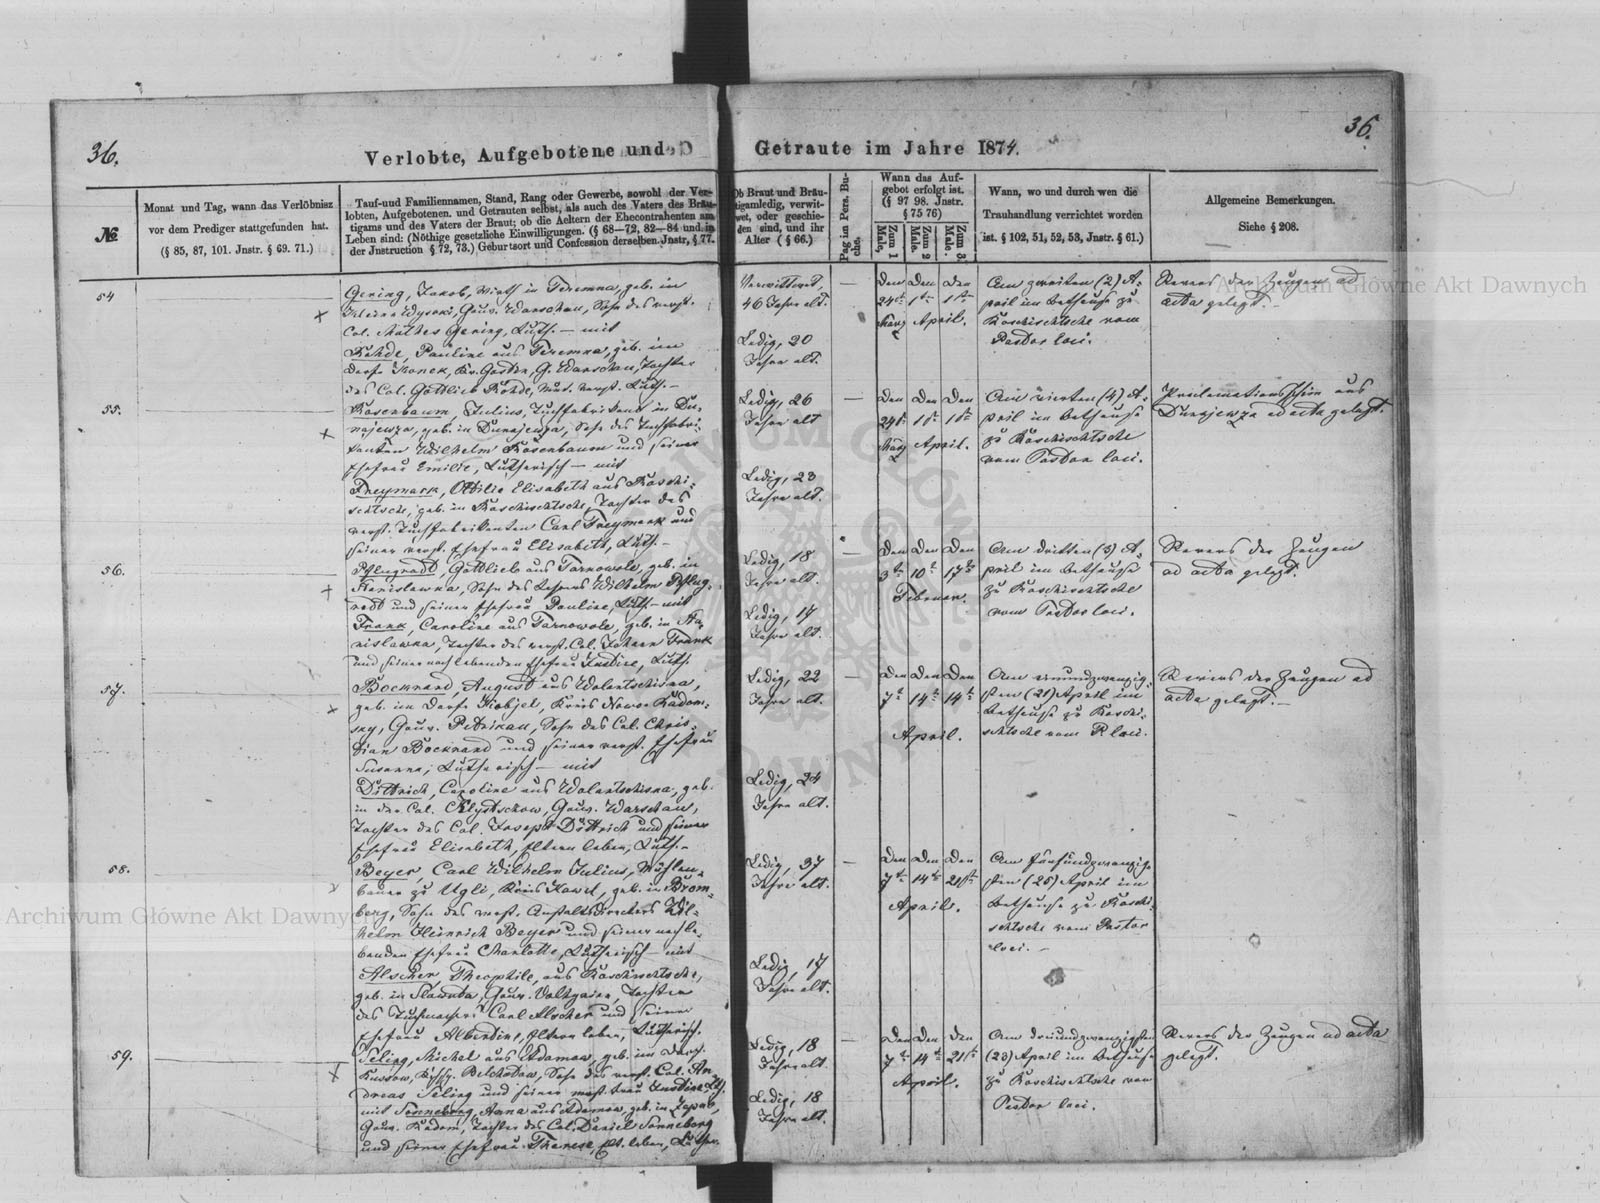 36.
36.
Verlobte, Aufgebotene und
Getraute im Jahre 1874.
№
Monat und Tag, wann das Verlöbnisz
vor dem Prediger stattgefunden hat.
(§ 85, 87, 101. Jnstr. § 69. 71.)
Tauf-und Familiennamen, Stand, Rang oder Gewerbe, sowohl der Ver-
lobten, Aufgebotenen. und Getrauten selbst, als auch des Vaters des Bräu-
tigams und des Vaters der Braut; ob die Aeltern der Ehecontrahenten am
Leben sind: (Nöthige gesetzliche Einwilligungen. (§ 68—72, 82—84 und. in
der Jnstruction § 72, 73.) Geburtsort und Confession derselben. Jnstr, § 77.
Ob Braut und Bräu-
tigam ledig, verwit-
wet, oder geschie-
den sind, und ihr
Alter ( § 66.)
Pag im Pers. Bu-
che.
Wann das Auf-
gebot erfolgt ist.
(§ 97 98. Jnstr.
§ 75 76)
Zum 1
Male,
Zum 2
Male.
Zum 3.
Male.
Wann, wo und durch wen die
Trauhandlung verrichtet worden
ist. § 102, 51, 52, 53, Jnstr. § 61.)
Allgemeine Bemerkungen.
Siehe § 208.
54
Gering, Jakob, Wirth in Teremna, geb. in
Gouv. Warschau, Sohn des verst.
Col. Mathes Gering, Luth. — mit
Rohde, Pauline aus Teremna, geb. im
Dorfe Kr. Gostin, G. Warschau, Tochter
des Col. Gottlieb Rohde, Luth. —
Verwittwet,
46 Jahre alt.
Ledig, 20
Jahre alt.
Den Den Den
24t 1t 1t
März April.
Am zweiten (2) A-
pril im Bethause zu
Roschischtsche vom
Pastor loci.
Revers der Zeugen ad
acta gelegt. —
55.
Rosenbaum, Julius, Tuchfabrikant in Du-
najewza, geb. in Dunajewza, Sohn des Tuchfabri-
kanten Wilhelm Rosenbaum und seiner
Ehefrau Emilie, Lutherisch — mit
Freymark, Ottilie Elisabeth aus Roschi-
schtsche, geb. in Roschischtsche, Tochter des
verst. Tuchfabrikanten Carl Freymark und
seiner verst. Ehefrau Elisabeth, Luth. —
Ledig, 26
Jahre alt
Ledig, 23
Jahre alt.
Den Den Den
24t 1t 1t
März April.
Am vierten (4) A-
pril im Bethause
zu Roschischtsche
vom Pastor loci.
Proclamationsschein aus
Dunajewza ad acta gelegt.
56.
Pflugradt, Gottlieb aus Tarnowole, geb. in
Stanislawka, Sohn des Wilhelm Pflug-
radt und seiner Ehefrau Pauline, Luth. — mit
Frank, Caroline aus Tarnowole, geb. in Sta-
nislawka, Tochter des verst. Col. Johann Frank
und seiner nachlebenden Ehefrau Justine, Luth.
Ledig, 18
Jahre alt.
Ledig, 17
Jahre alt.
Den Den Den
3t 10t 17t
Februar.
Am dritten (3) A-
pril im Bethause
zu Roschischtsche
vom Pastor loci.
Revers der Zeugen
ad acta gelegt.
57.
Bocknard, August aus Wolantschisna,
geb. im Dorfe Kobjel, Kreis Nowo-Radom-
sky, Gouv. Petrikau, Sohn des Col. Chris-
tian Bocknard und seiner verst. Ehefrau
Susanna, Lutherisch — mit
Dittrich, Caroline aus Wolantschisna, geb.
in der Col. Gouv. Warschau,
Tochter des Col. Joseph Dittrich und seiner
Ehefrau Elisabeth, Eltern leben, Luth. —
Ledig, 22
Jahre alt.
Ledig, 24
Jahre alt.
Den Den Den
7t 14t 14t
April.
Am einundzwanzig-
sten (21) April im
Bethause zu Roschi-
schtsche vom P. loci.
Revers der Zeugen ad
acta gelegt. —
58.
Beyer, Carl Wilhelm Julius, Mühlen-
bauer zu Ugli, Kreis Kowel, geb. in Brom-
berg, Sohn des verst. Anstaltsdirectors Wil-
helm Heinrich Beyer und seiner nachle-
benden Ehefrau Charlotte, Lutherisch — mit
Alscher, Theophile, aus Roschischtsche,
geb. in Slawuta, Gouv. Volhynien, Tochter
des Tuchmachers Carl Alscher und seiner
Ehefrau Albertine, Eltern leben, Lutherisch.
Ledig, 37
Jahre alt.
Ledig, 17
Jahre alt.
Den Den Den
7t 14t 21t
April.
Am fünfundzwanzig-
sten (25) April im
Bethause zu Roschi-
schtsche vom Pastor
loci. —
59.
Seling, Michel aus Adamow, geb. im Dorf
Kussow, Belchatow, Sohn des verst. Col. An-
dreas Seling und seiner verst. Frau Justine
mit Sonneberg, Anna aus Adamow, geb. in
Gouv. Radom, Tochter des Col. Daniel Sonneberg
und seiner Ehefrau Therese, Elt. leben, Luther.
Ledig, 18
Jahre alt.
Ledig, 18
Jahre alt.
Den Den Den
7t 14t 21t
April.
Am dreiundzwanzigsten
(23) April im Bethause
zu Roschischtsche vom
Pastor loci.
Revers der Zeugen ad acta
gelegt.
Archiwum Główne Akt Dawnych
Archiwum Główne Akt Dawnych